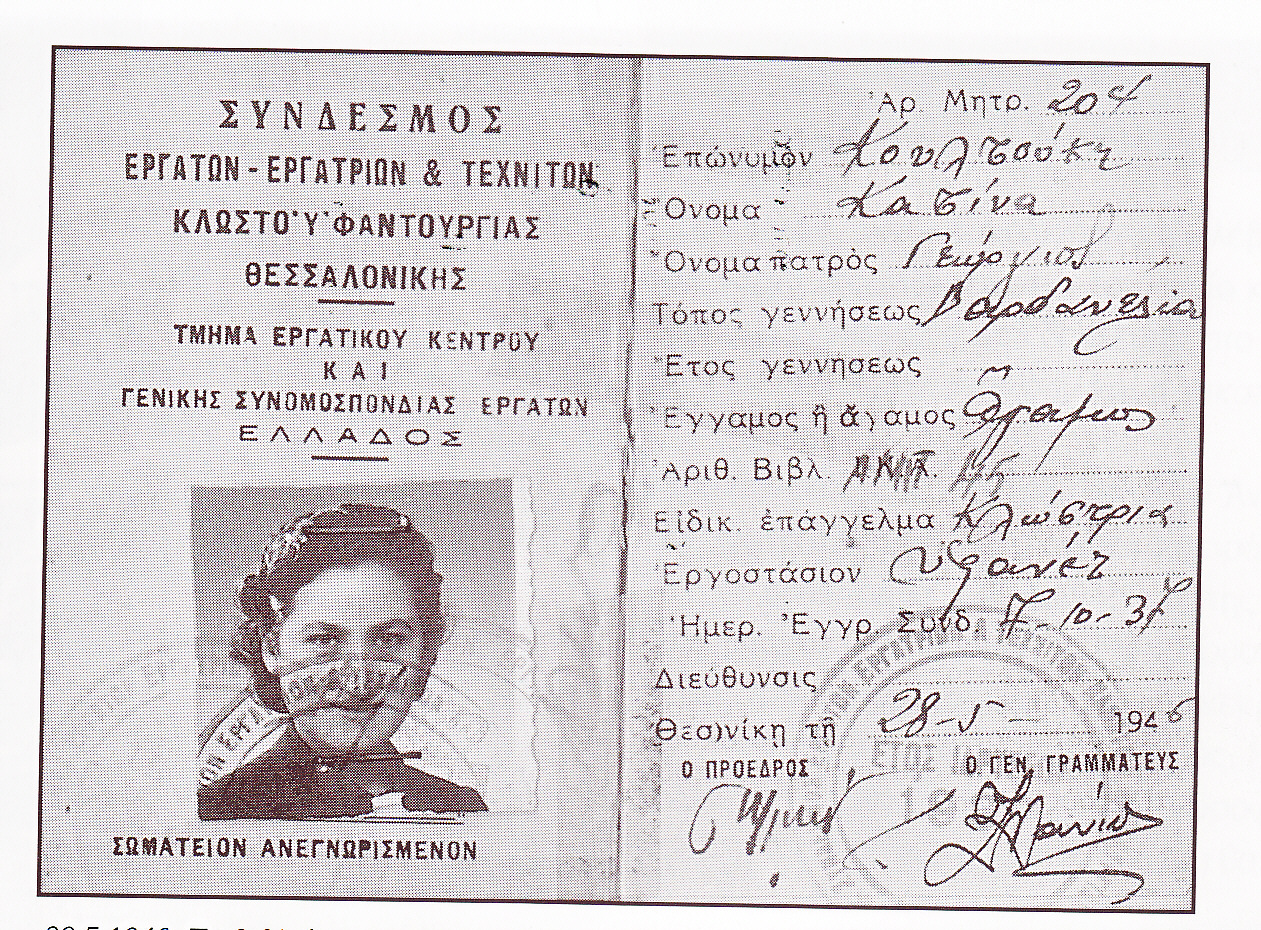 ΣΥΝΔΕΣΜΟΣ
ΕΡΓΑΤΩΝ - ΕΡΓΑΤΡΙΩΝ & ΤΕΧΝΙΤΩΝ
ΚΛΩΣΤΟ·Υ·ΦΑΝΤΟΥΡΓΙΑΣ
ΘΕΣΣΑΛΟΝΙΚΗΣ
ΤΜΗΜΑ ΕΡΓΑΤΙΚΟΥ ΚΕΝΤΡΟΥ
ΚΑΙ
ΓΕΝΙΚΗΣ ΣΥΝΟΜΟΣΠΟΝΔΙΑΣ ΕΡΓΑΤΩΝ
ΕΛΛΑΔΟΣ
ΣΩΜΑΤΕΙΟΝ ΑΝΕΓΝΩΡΙΣΜΕΝΟΝ
Ἀρ Μητρ. 204
Ἐπώνυμον Κουλτσούκη
Ὄνομα Κατίνα
Ὄνομα πατρὸς Γεώργιος
Τόπος γεννήσεως Βαρδανέλια
Ἔτος γεννήσεως
Ἔγγαμος ἢ ἄγαμος ἄγαμος
Ἀριθ. Βιβλ.
Εἰδικ. ἐπάγγελμα Κλώστρια
Ἐργοστάσιον Υφανέτ
Ἡμερ. Ἐγγρ. Συνδ. 7-10-37
Διεύθυνσις
Θεσ)νίκη τῇ 28-5- 1946
Ο ΠΡΟΕΔΡΟΣ Ο ΓΕΝ. ΓΡΑΜΜΑΤΕΥΣ